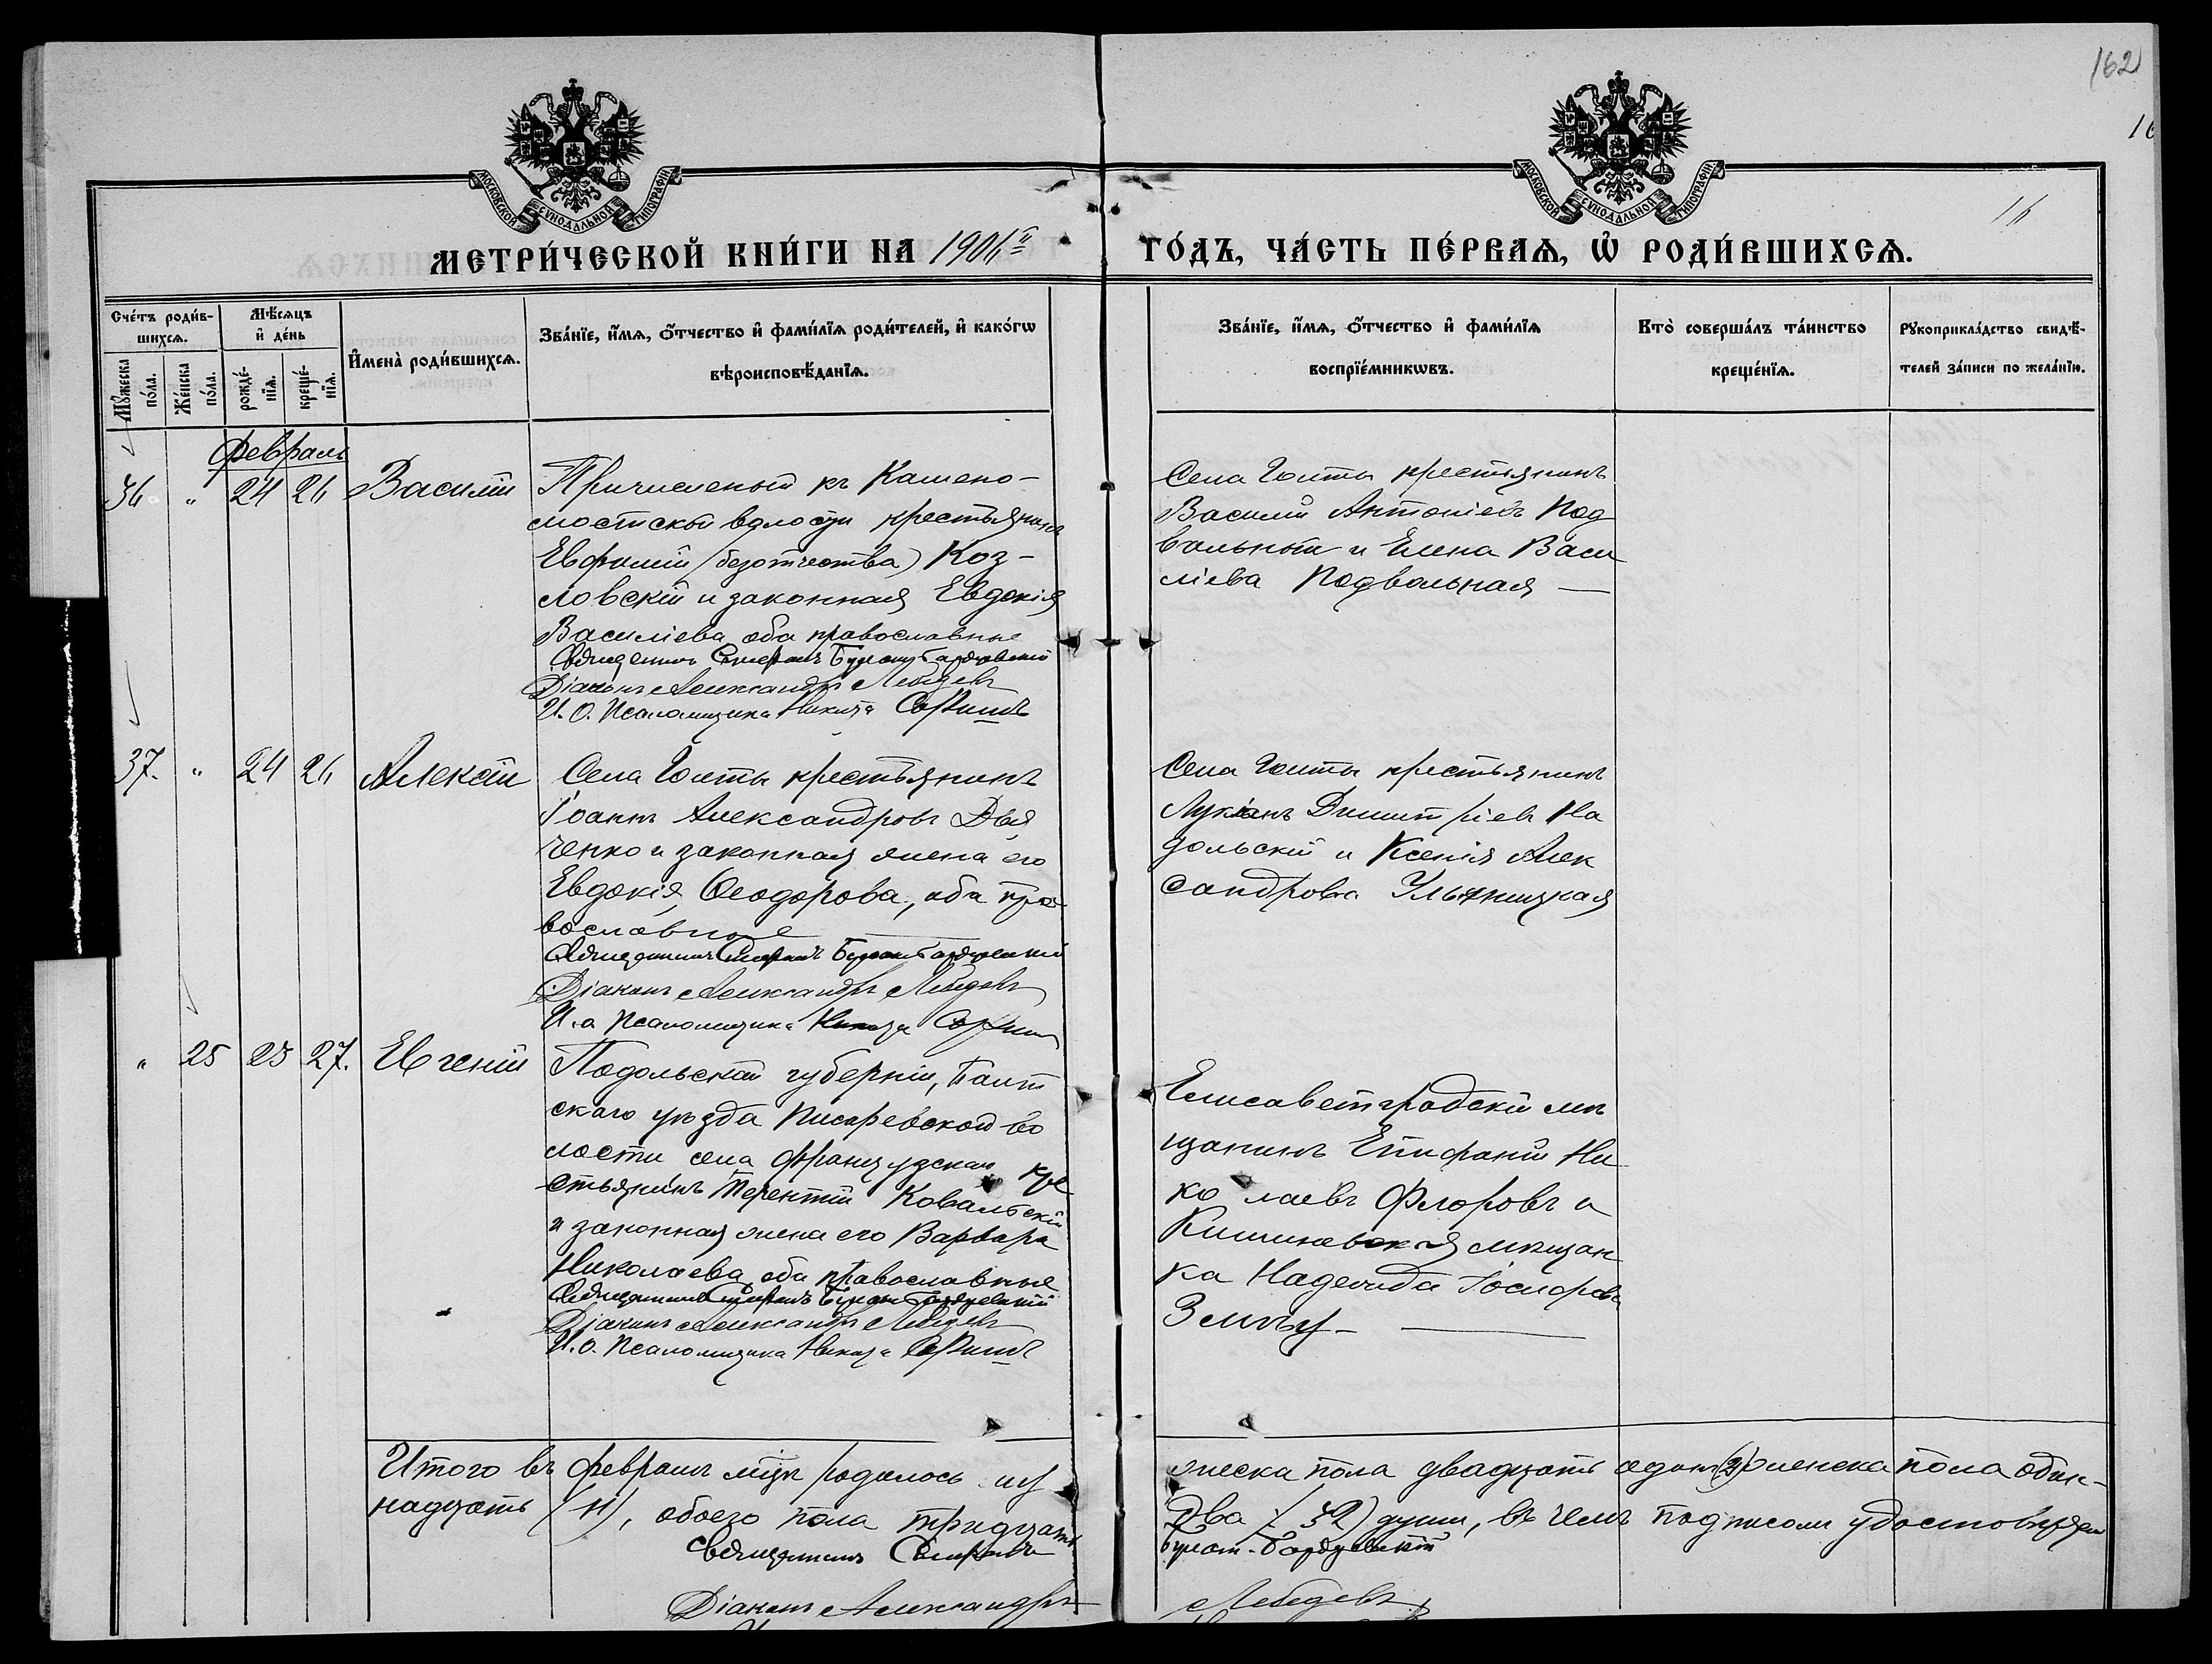 162
16
МОСКОВСКОЙ СѴНОДАЛЬНОЙ ТИПОГРАФІИ
МОСКОВСКОЙ СѴНОДАЛЬНОЙ ТИПОГРАФІИ
МЕТРИ́ЧЕСКОЙ КНИ́ГИ НА 1906й
ГО́ДЪ, ЧА́СТЬ ПЕ́РВАѦ, Ѡ҆ РОДИ́ВШИХСѦ.
Сче́тъ роди́в-
шихсѧ.
Мꙋ́жеска по́ла.
Же́нска по́ла.
Мѣ́сѧцъ
и҆ де́нь
рожде́-
нїѧ.
креще́-
нїѧ.
И҆мена̀ роди́вшихсѧ.
Зва́нїе, и҆́мѧ, ѻ҆́тчество и҆ фами́лїѧ роди́телей, и҆ како́гѡ
вѣроисповѣ́данїѧ.
Зва́нїе, и҆́мѧ, ѻ҆́тчество и҆ фами́лїѧ
воспрїе́мникѡвъ.
Кто̀ соверша́лъ та́инство
креще́нїѧ.
Рꙋкоприкла́дство свидѣ́-
телей за́писи по жела́нїю.
Февраль
36 " 24 26 Василій
Причисленый къ Камено-
мостской волости крестьянинъ
Евфимій (безотчества) Коз-
ловскій и законная Евдокія
Василіева, оба православные
Священникъ Бугаш-Гардуевскій
Діаконъ Александръ Лебедевъ
И. О. Псаломщика Никита
Села Голты крестьянинъ
Василій Антоніевъ Под
вальный и Елена Васи
ліева Подвальная —
37. " 24 26 Алексій
Села Голты крестьянинъ
Іоаннъ Александровъ Дья
ченко и законная жена его
Евдокія Ѳеодорова, оба пра
вославные
Священникъ
Діаконъ Александръ Лебедевъ
И. о Псаломщика Никита
Села Голты крестьянинъ
Лукіанъ Димитріевъ На
дольскій и Ксенія Алек
сандрова Ульяницкая
" 25 25 27. Евгеній
Подольской губерніи, Балт
скаго уѣзда Писаревской во
лости села кре
стьянинъ Терентій Ковальскій
и законная жена его Варвара
Николаева, оба православные
Священникъ
Діаконъ Александръ Лебедевъ
И. О. Псаломщика Никита
Елисаветградскій мѣ
щанинъ Епифаній Ни
колаевъ Флоровъ и
Кишиневская мѣщан
ка Надежда Іосифова
Итого въ февралѣ мцѣ родилось муж
жеска пола двадцать одинъ (21) женска пола один-
надцать (11), обоего пола тридцать
два (32) души, въ чемъ подписомъ удостовѣряемъ
Священникъ
Діаконъ Александръ
Лебедевъ